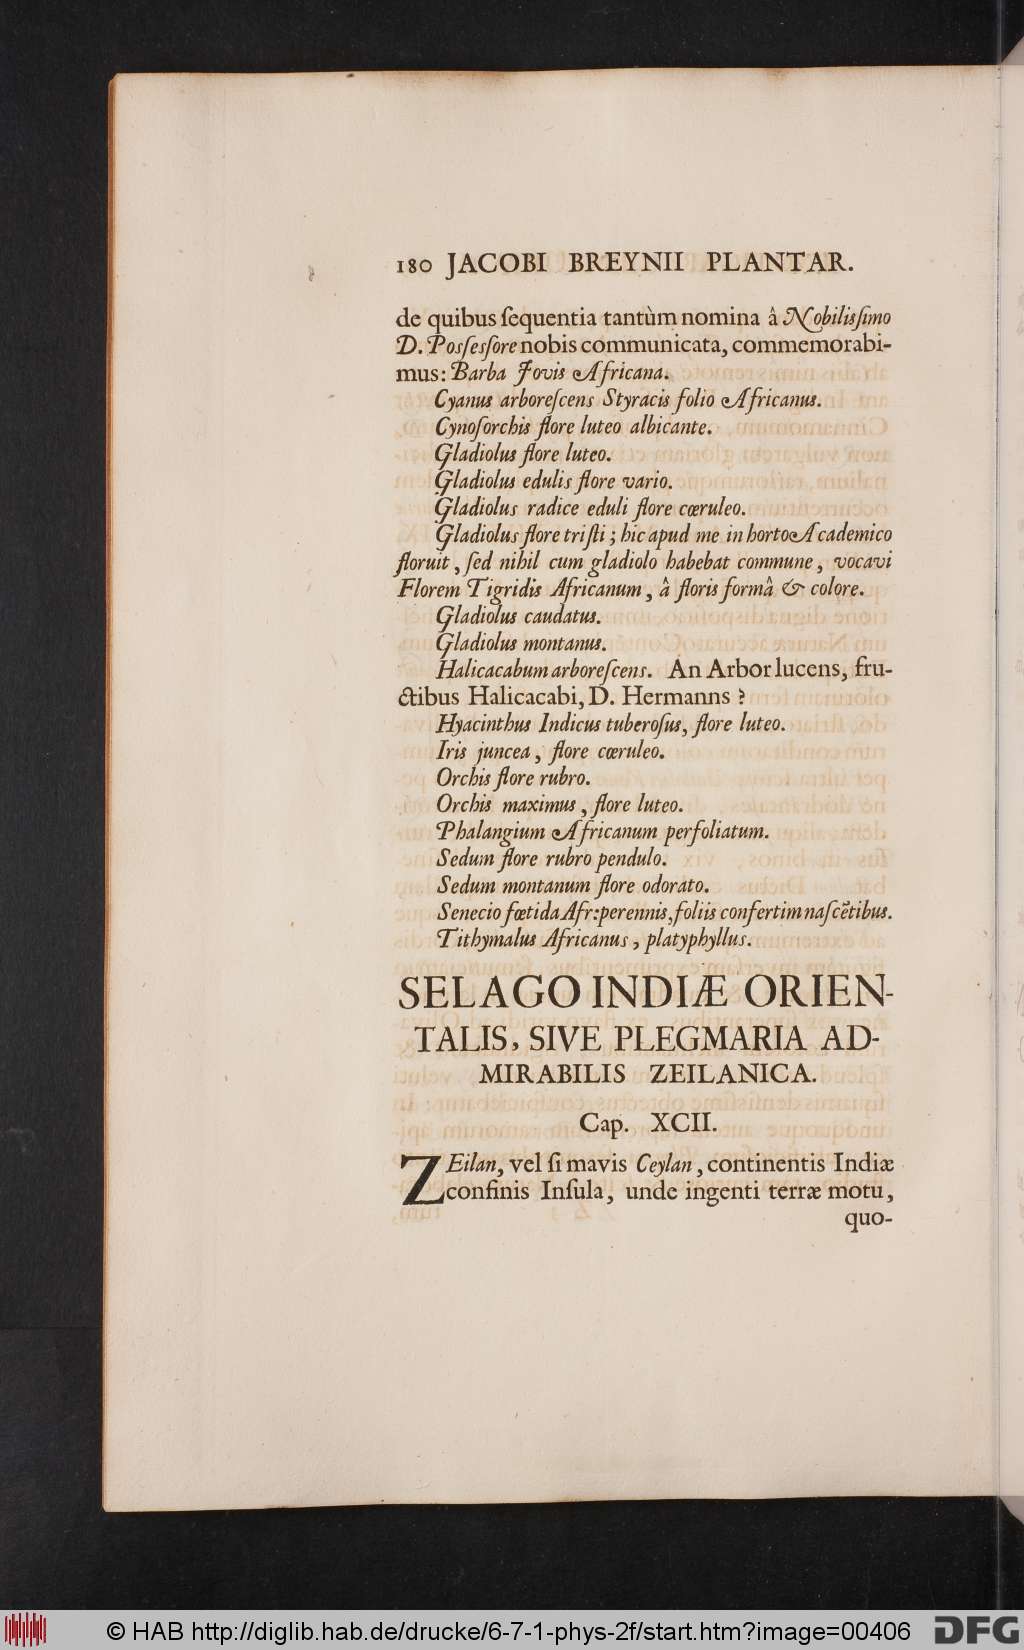 180 JACOBI BREYNII PLANTAR.
de quibus ſequentia tantùm nomina â Nobilisſimo
D. Posſesſore nobis communicata, commemorabi-
mus: Barba Jovis Africana.
Cyanus arboreſcens Styracis folio Africanus.
Cynoſorchis flore luteo albicante.
Gladiolus flore luteo.
Gladiolus edulis flore vario.
Gladiolus radice eduli flore cœruleo.
Gladiolus flore triſti; hic apud me in horto Academico
floruit, ſed nihil cum gladiolo habebat commune, vocavi
Florem Tigridis Africanum, â floris formâ & colore.
Gladiolus caudatus.
Gladiolus montanus.
Halicacabum arboreſcens. An Arbor lucens, fru-
ctibus Halicacabi, D. Hermanns?
Hyacinthus Indicus tuberoſus, flore luteo.
Iris juncea, flore cœruleo.
Orchis flore rubro.
Orchis maximus, flore luteo.
Phalangium Africanum perfoliatum.
Sedum flore rubro pendulo.
Sedum montanum flore odorato.
Senecio fœtida Afr: perennis, foliis confertim naſcẽtibus.
Tithymalus Africanus, platyphyllus.
SELAGO INDIÆ ORIEN-
TALIS, SIVE PLEGMARIA AD-
MIRABILIS ZEILANICA.
Cap. XCII.
ZEilan, vel ſi mavis Ceylan, continentis Indiæ
confinis Inſula, unde ingenti terræ motu,
quo-
© HAB http://diglib.hab.de/drucke/6-7-1-phys-2f/start.htm?image=00406
DFG